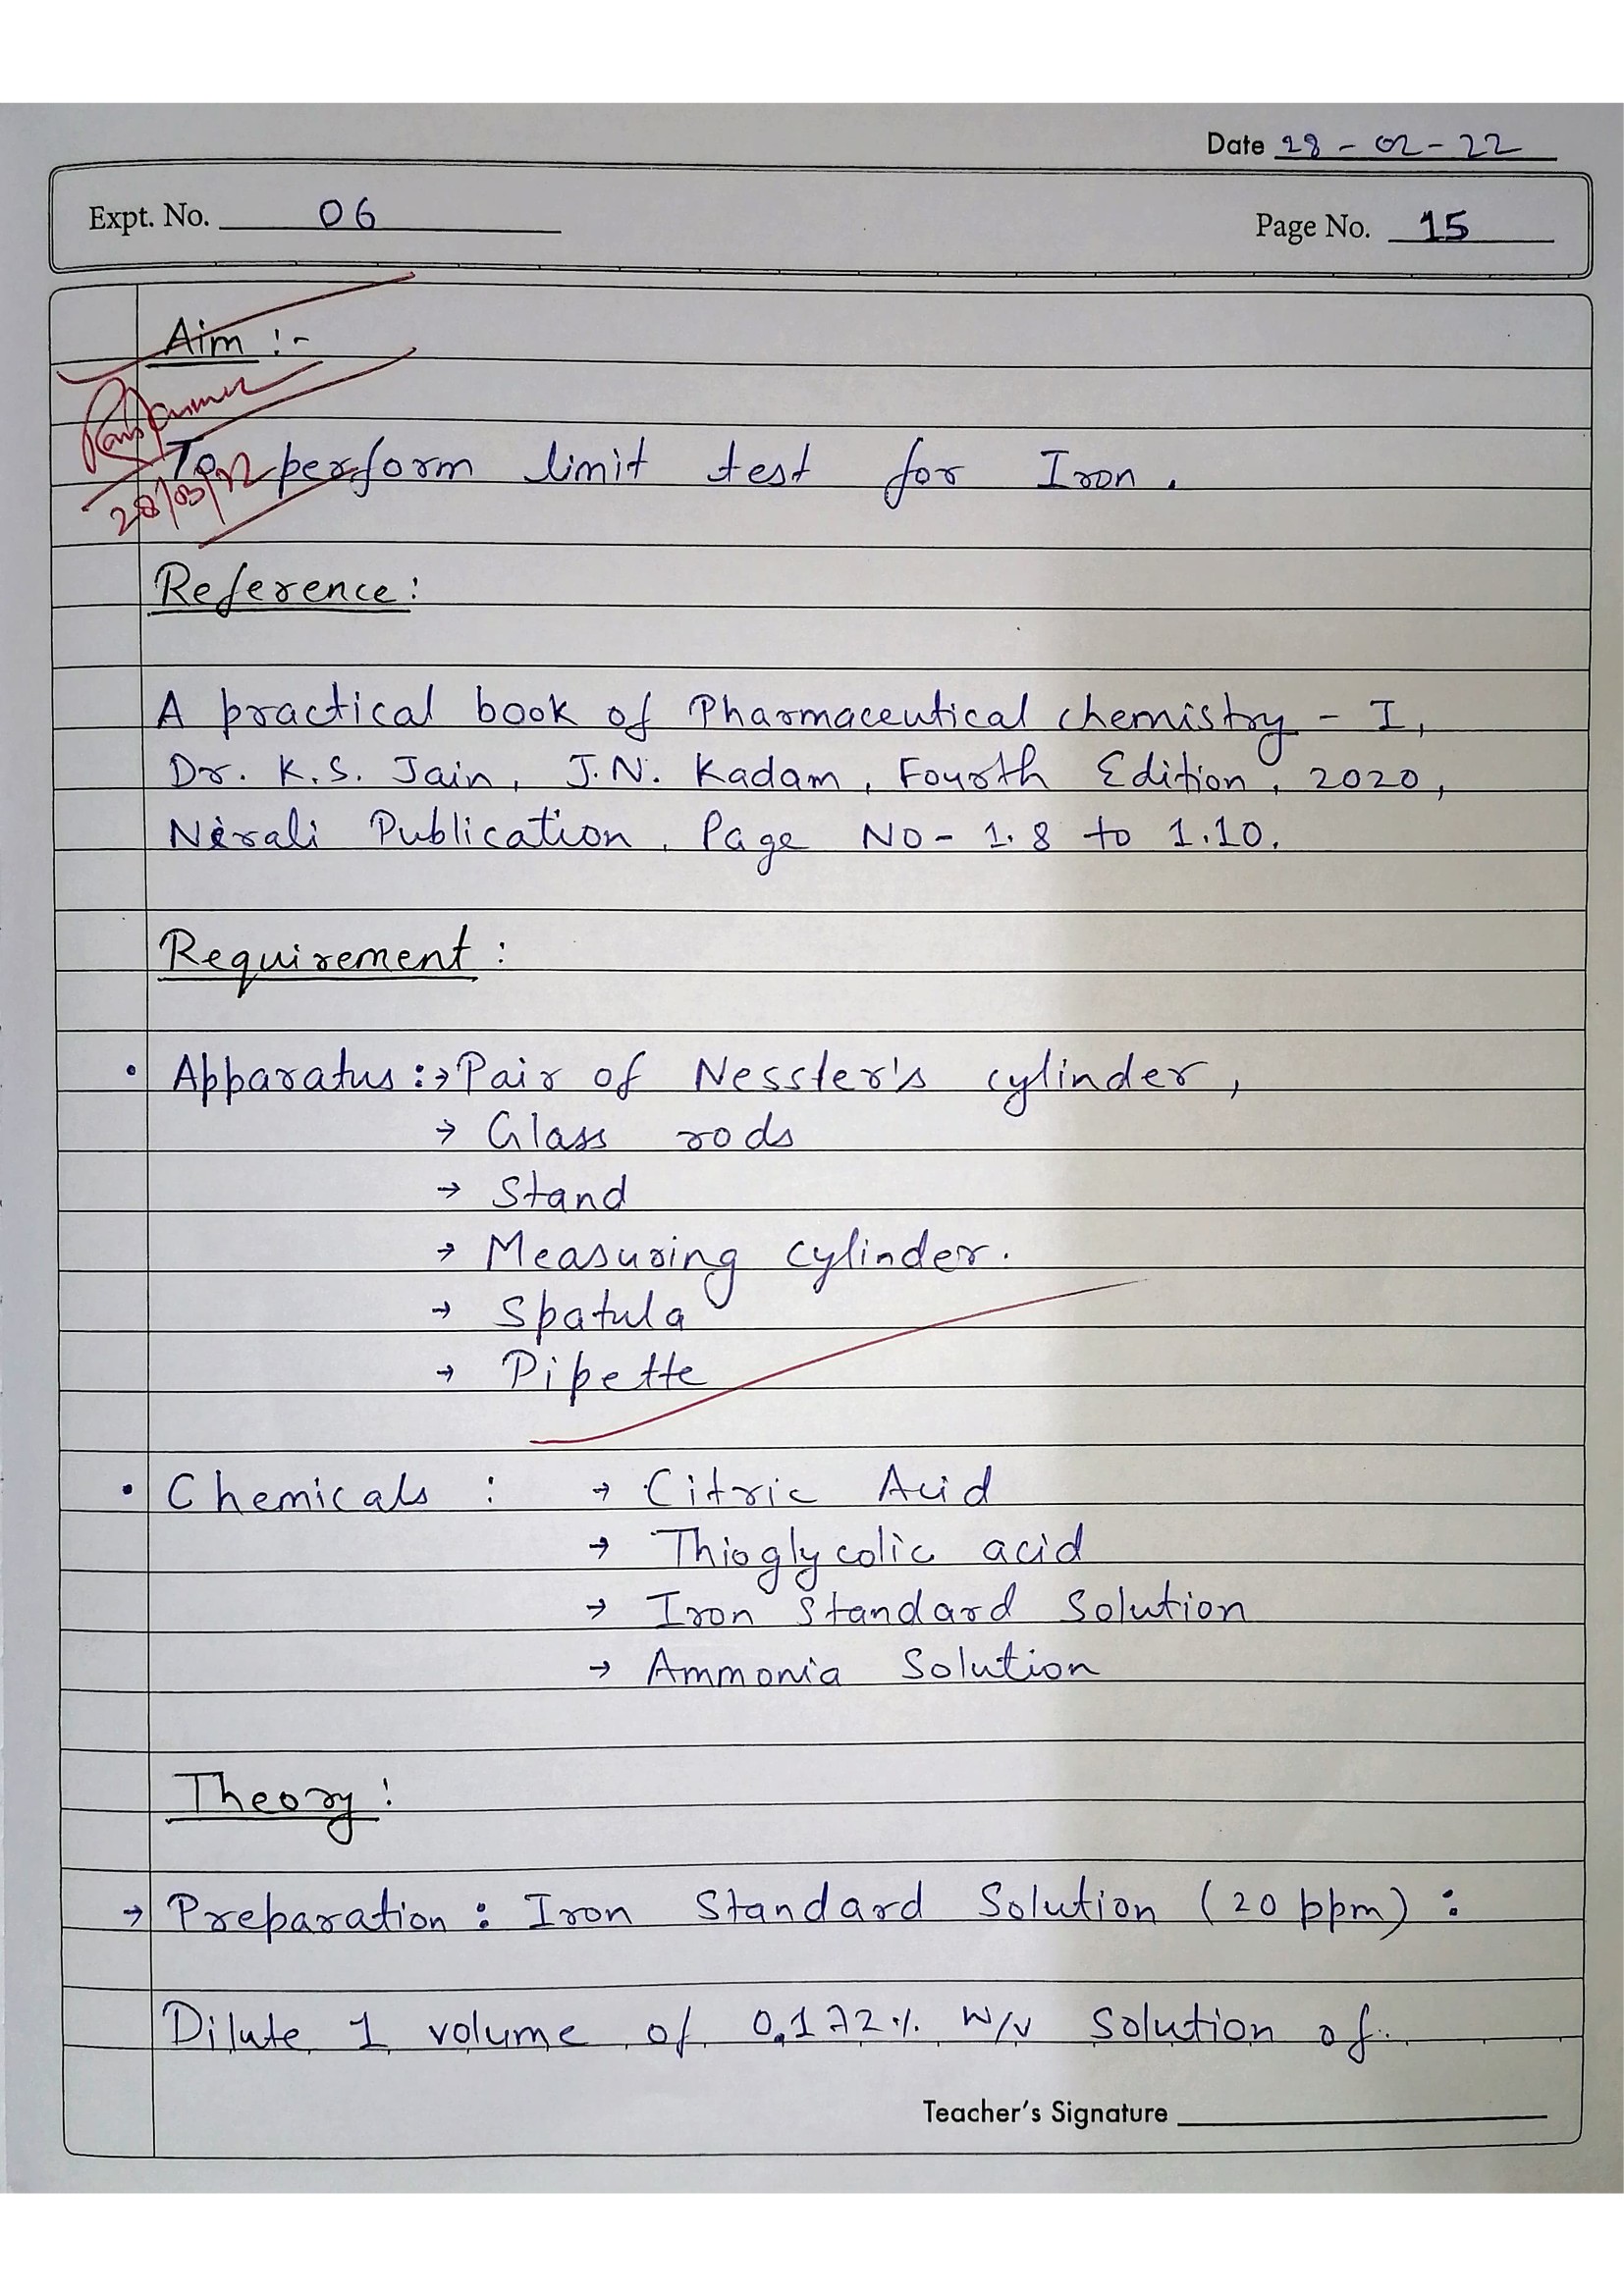 Date 28-02-22
Expt. No. 06
Page No. 15
Aim :-
To perform limit test for Iron.
28/03/22
Reference:
A practical book of Pharmaceutical chemistry - I,
Dr. K.S. Jain, J.N. Kadam, Fourth Edition, 2020,
Nirali Publication, Page No- 1.8 to 1.10.
Requirement :
• Apparatus :→ Pair of Nessler's cylinder,
→ Glass rods
→ Stand
→ Measuring cylinder.
→ Spatula
→ Pipette
• Chemicals : → Citric Acid
→ Thioglycolic acid
→ Iron Standard Solution
→ Ammonia Solution
Theory :
→ Preparation : Iron Standard Solution (20 ppm) :
Dilute 1 volume of 0.172% w/v Solution of
Teacher's Signature